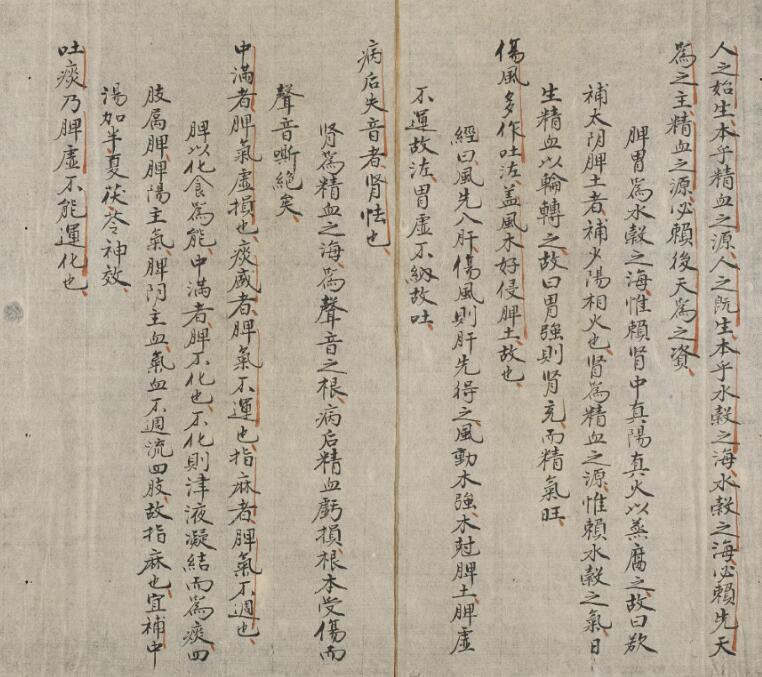 人之始生、本乎精血之源、人之既生、本乎水穀之海、水穀之海、必賴先天
為之主、精血之源、必賴後天為之資、
脾胃為水穀之海、惟賴肾中真陽真火以蒸腐之、故曰欲
補太阴脾土者、補少陽相火也、肾為精血之源、惟賴水穀之氣、日
生精血以輪轉之、故曰胃強則肾充、而精氣旺、
傷風多作吐泻、盖風木好侵脾土故也、
經曰、風先入肝、傷風則肝先得之、風動木強、木尅脾土、脾虚
不運故泻、胃虚不納故吐、
病后失音者、肾怯也、
肾為精血之海、為聲音之根、病后精血虧損、根本受傷、而
聲音嘶絕矣、
中滿者、脾氣虚損也、痰盛者、脾氣不運也、指麻者、脾氣不週也、
脾以化食為能、中滿者、脾不化也、不化則津液凝結而為痰、四
肢属脾、脾陽主氣、脾阴主血、氣血不週流四肢、故指麻也、宜補中
湯加半夏茯苓神效、
吐痰乃脾虚不能運化也、